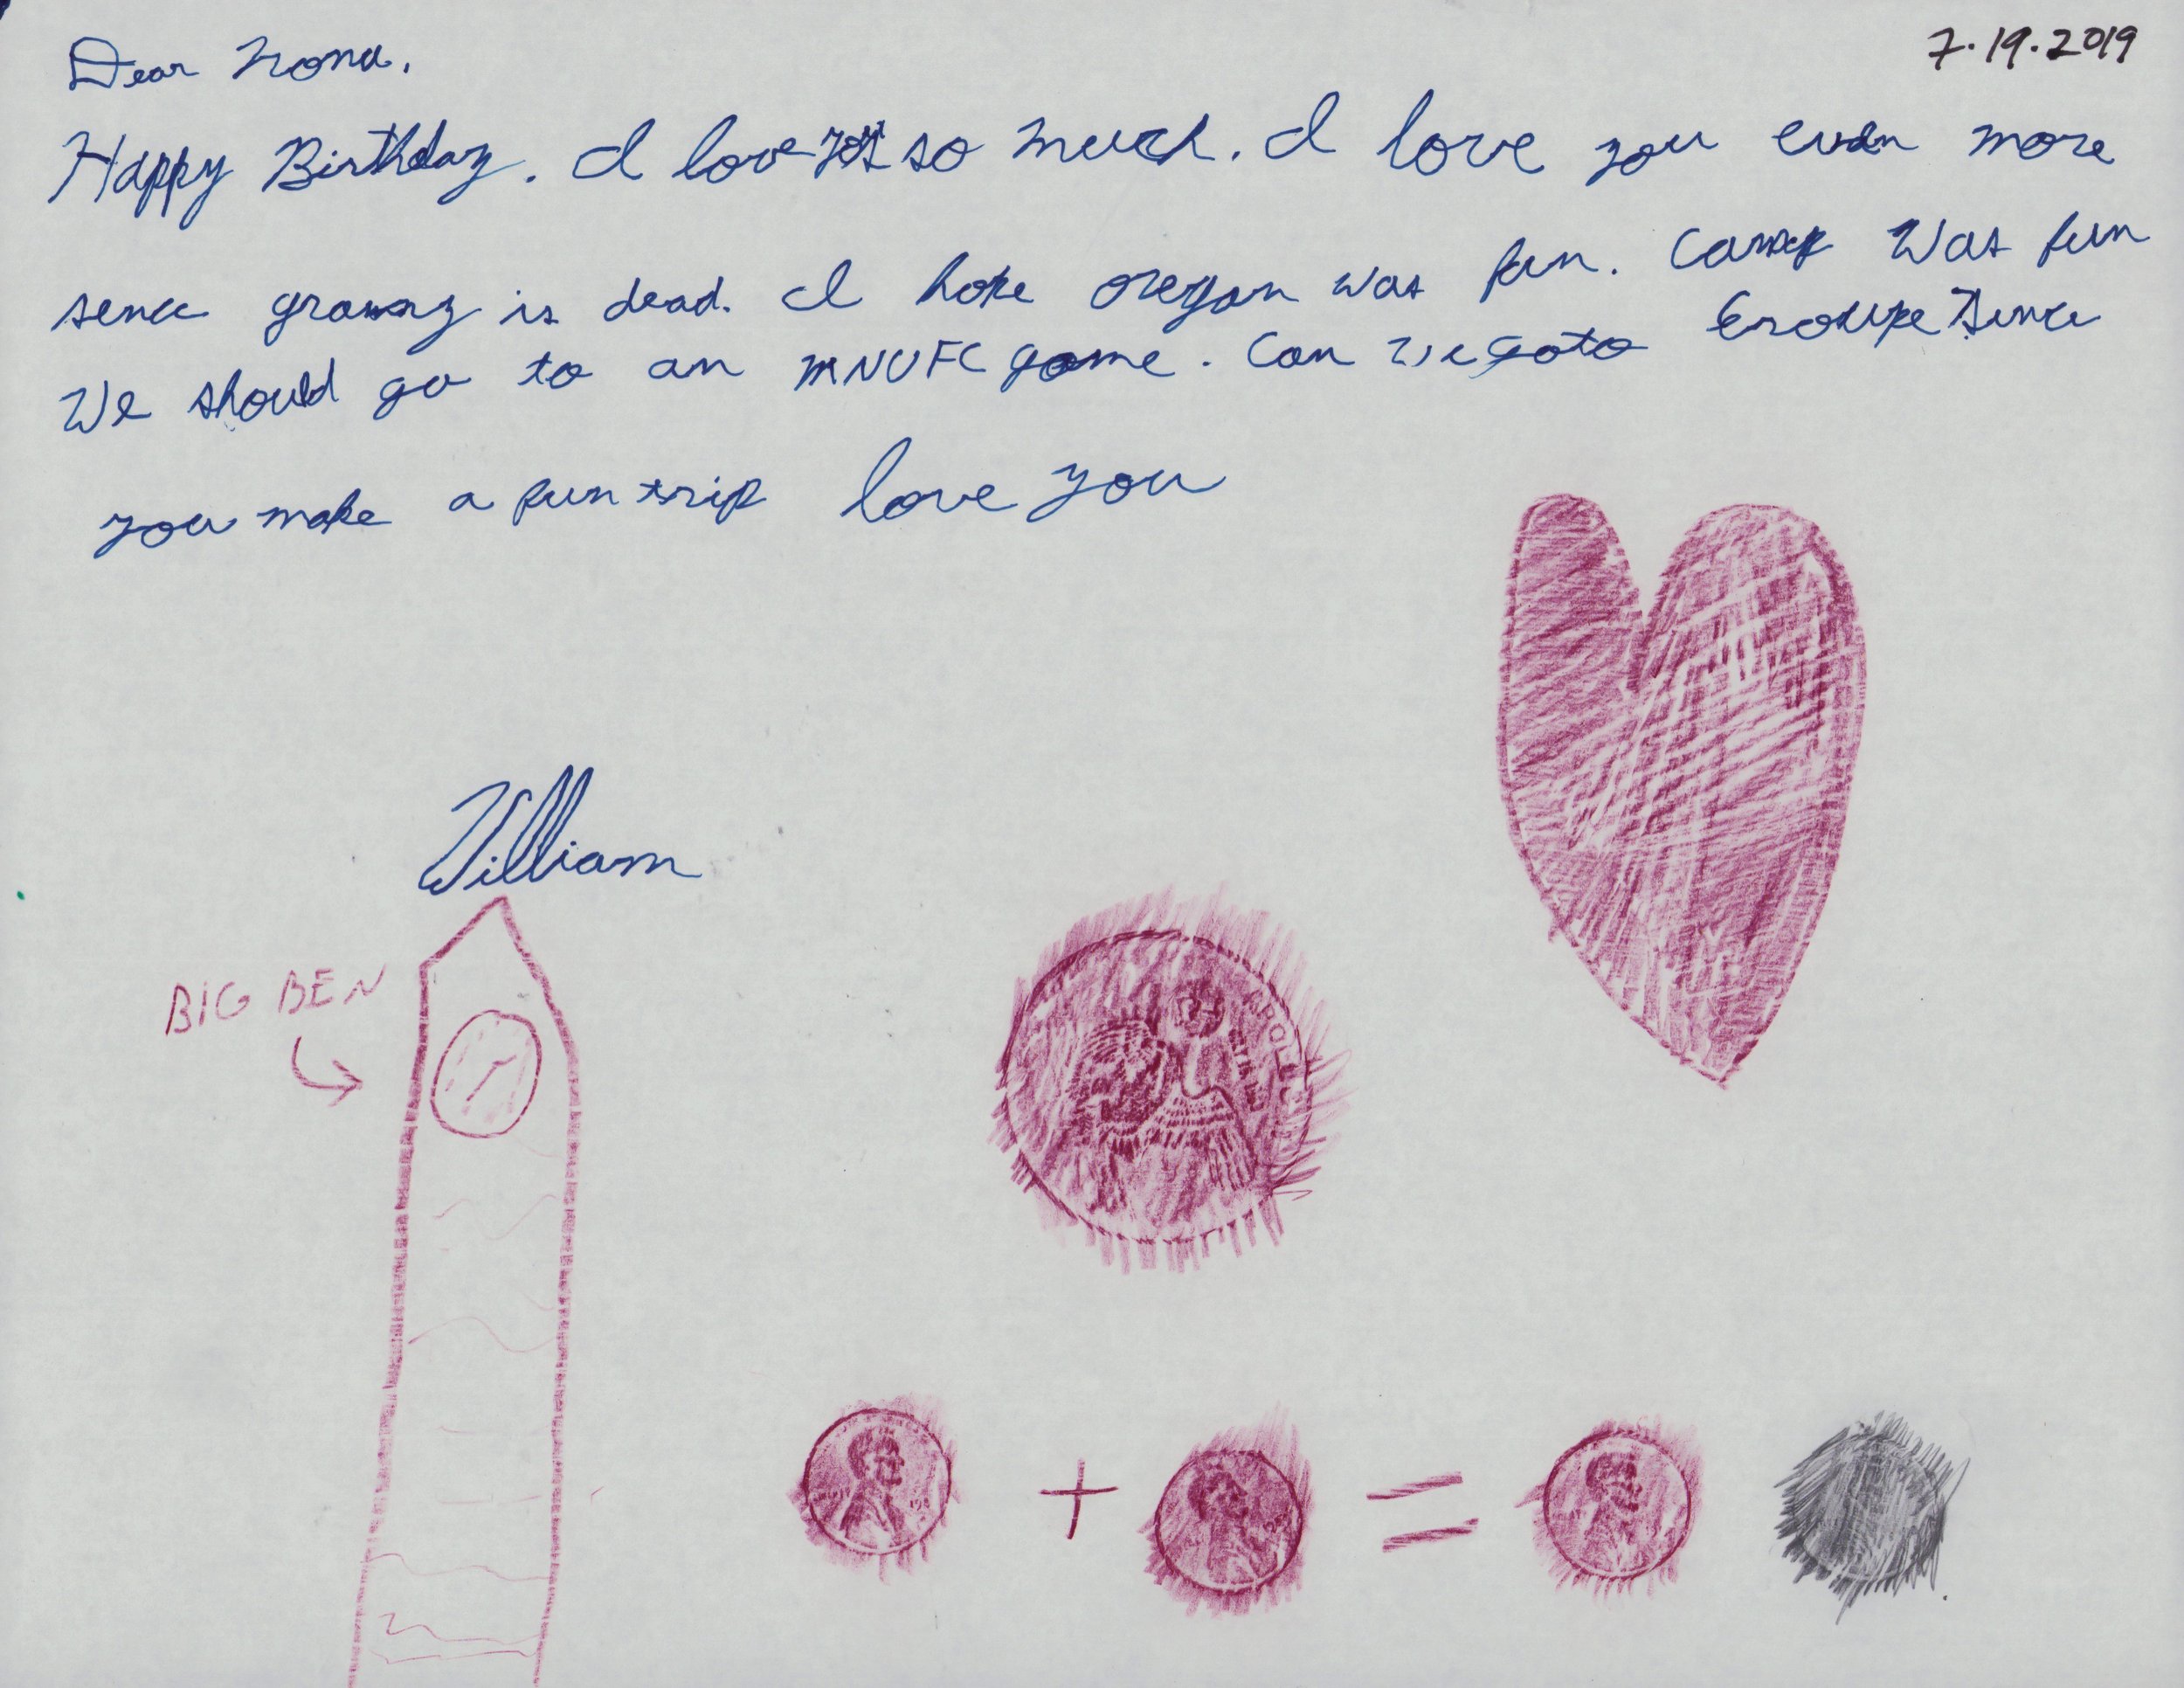 7.19.2019
Dear Nona,
Happy Birthday. I love you so much. I love you even more
sence granny is dead. I hope oregon was fun. Camp Was fun
We should go to an MNUFC game. Can we go to Eroupe Since
you make a fun trip love you
William
BIG BEN